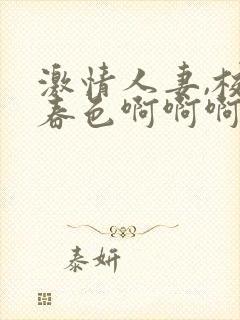 激情人妻,校
春色啊啊啊
泰妍